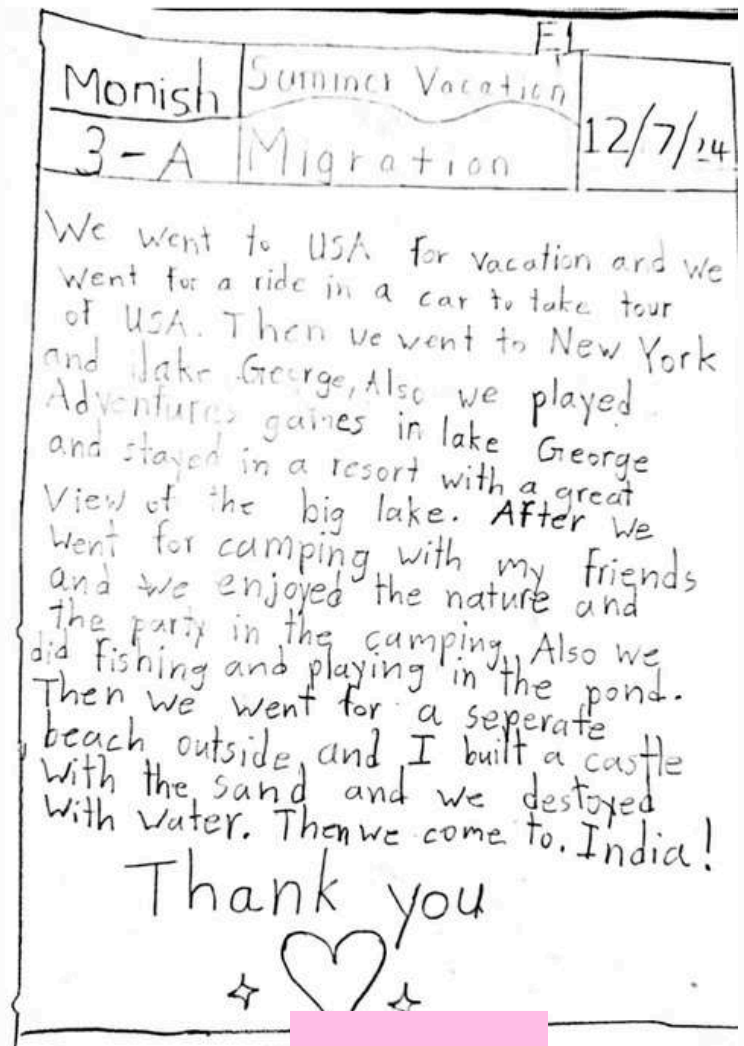 EL
Monish
Summer Vacation
3 - A
Migration
12/7/24
We went to USA for vacation and we
went for a ride in a car to take tour
of USA. Then we went to New York
and lake George, Also we played
Adventures games in lake George
and stayed in a resort with a great
View of the big lake. After we
went for camping with my friends
and we enjoyed the nature and
the party in the camping. Also we
did fishing and playing in the pond.
Then we went for a seperate
beach outside, and I built a castle
with the sand and we destoyed
with water. Then we come to. India!
Thank you